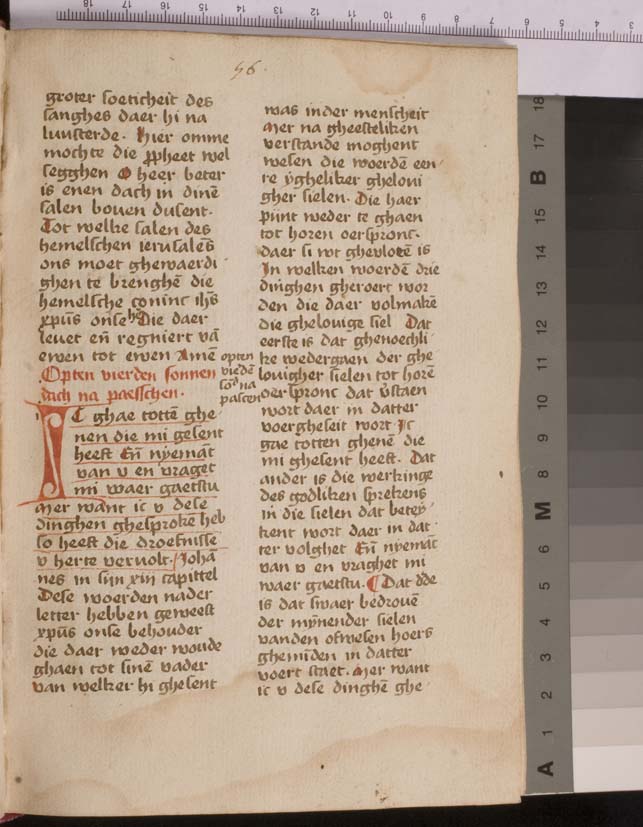 56.
groter soeticheit des
sanghes daer hi na
luusterde. Hier omme
mochte die ꝓpheet wel
segghen O heer beter
is enen dach in dinē
salen bouen dusent.
Tot welke salen des
hemelschen ierusalēs
ons moet ghewaerdi
ghen te brenghē die
hemelsche coninc ihs̄
xpūs onse he Die daer
leuet eñ regniert vā
ewen tot ewen Amē
Opten vierden sonnen
dach na paesschen.
IC ghae tottē ghe
nen die mi gesent
heeft Eñ nyemāt
van v en vraget
mi waer gaetstu
Mer want ic v dese
dinghen ghesprokē heb
so heeft die droefnisse
v herte veruolt. Johā
nes in sijn xvi capittel
Dese woerden nader
letter hebben geweest
xpūs onse behouder
die daer weder woude
ghaen tot sinē vader
van welker hi ghesent
opten
vierdē
sōd na
pascen
was inder menscheit
Mer na gheesteliken
verstande moghent
wesen die woerdē een
re ygheliker gheloui
gher sielen. Die haer
pijnt weder te ghaen
tot horen oerspronc.
daer si wt ghevlotē is
In welken woerdē drie
dinghen gheroert wor
den die daer volmakē
die ghelouige siel Dat
eerste is dat ghenoechli
ke wedergaen der ghe
louigher sielen tot horē
oerspronc dat v̄staen
wort daer in datter
voergheseit wort Ic
gae totten ghenē die
mi ghesent heeft. Dat
ander is die werkinge
des godliken sprekens
in die sielen dat betey
kent wort daer in dat
ter volghet Eñ nyemāt
van v en vraghet mi
waer gaetstu. Dat dde
is dat swaer bedrouē
der mynender sielen
vanden ofwesen hoers
ghemīden in datter
voert staet. Mer want
ic v dese dinghē ghe